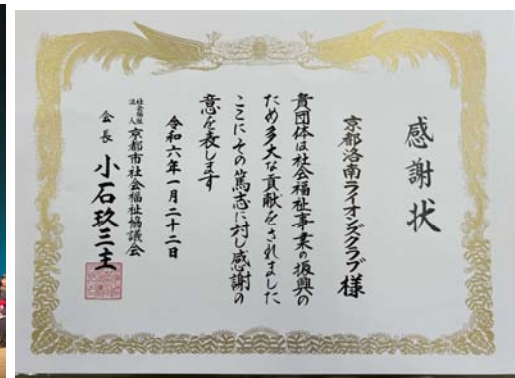 感謝状
京都洛南ライオンズクラブ様
貴団体は社会福祉事業の振興の
ため多大な貢献をされました
ここにその篤志に対し感謝の
意を表します
令和六年一月二十二日
社会福祉法人京都市社会福祉協議会
会長 小石玖三主